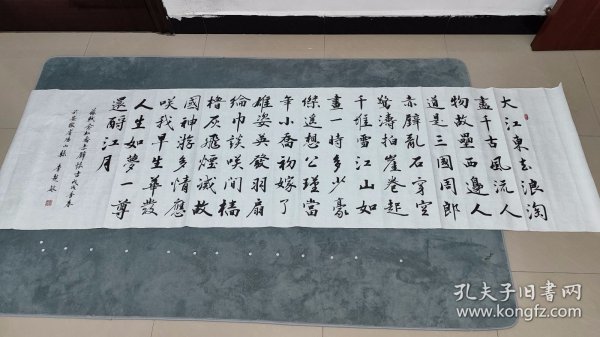 大江東去浪淘
盡千古風流人
物故壘西邊人
道是三國周郎
赤壁亂石穿空
驚濤拍崖卷起
千堆雪江山如
畫一時多少豪
傑遙想公瑾當
年小喬初嫁了
雄姿英發羽扇
綸巾談咲間檣
櫓灰飛煙滅故
國神游多情應
咲我早生華發
人生如夢一尊
還酹江月
蘇軾念奴嬌赤壁懷古戊戌年末
孔夫子旧书网
www.kongfz.com